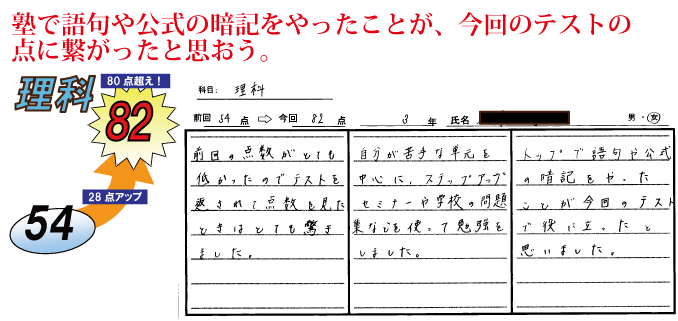 塾で語句や公式の暗記をやったことが、今回のテストの
点に繋がったと思おう。
理科
80点超え！
82
28点アップ
54
科目: 理科
前回 54 点 ⇨ 今回 82 点 3 年 氏名 男・女
前回の点数がとても
低かったのでテストを
返されて点数を見た
ときはとても驚き
ました。
自分が苦手な単元を
中心に、ステップアップ
セミナーや学校の問題
集などを使って勉強を
しました。
トップで語句や公式
の暗記をやった
ことが今回のテスト
で役に立ったと
思いました。